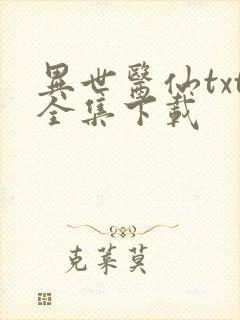 異世醫仙txt
全集下載
克萊莫